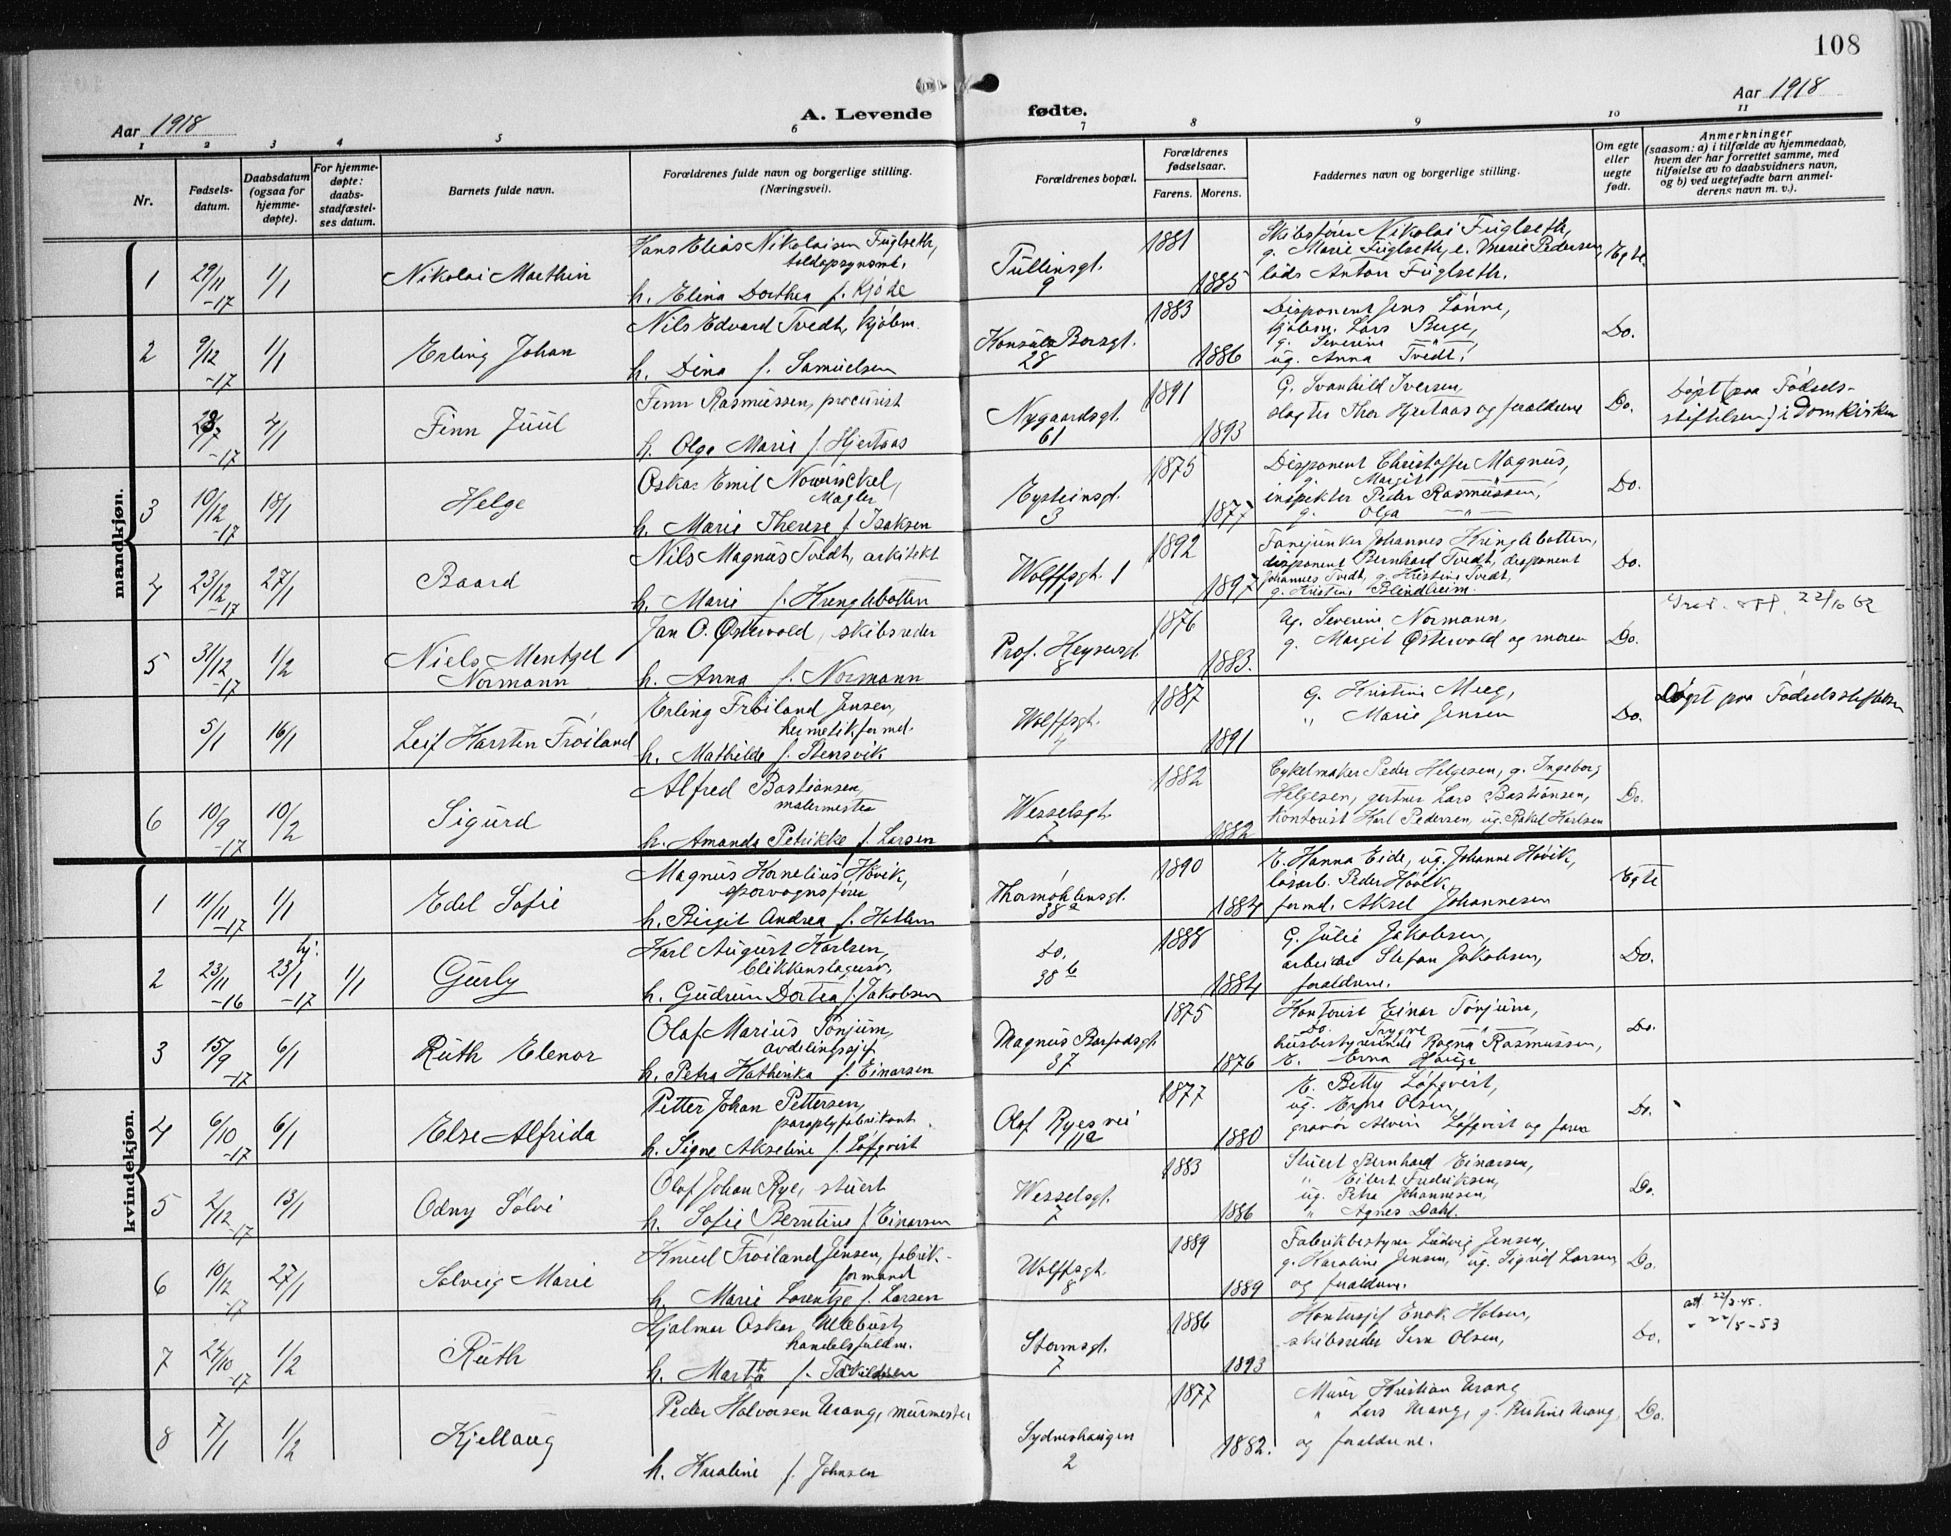 108
Aar 1918
Aar 1918
A. Levende fødte.
1 2 3 4 5 6 7 8 9 10 11
Nr.
Fødsels-
datum.
Daabsdatum
(ogsaa for
hjemme-
døpte).
For hjemme-
døpte:
daabs-
stadfæstel-
ses datum.
Barnets fulde navn.
Forældrenes fulde navn og borgerlige stilling.
(Næringsvei).
Forældrenes bopæl.
Forældrenes
fødselsaar.
Farens. Morens.
Faddernes navn og borgerlige stilling.
Om egte
eller
uegte
født.
Anmerkninger
(saasom: a) i tilfælde av hjemmedaab,
hvem der har forrettet samme, med
tilføielse av to daabsvidners navn,
og b) ved uegtefødte barn anmel-
derens navn m. v.).
mandkjøn.
1 29/11 -17 1/1 Nikolai Marthin
Hans Elias Nikolaisen Fuglseth,
toldopsynsmt.
h. Elina Dorthea f. Kjøde
Tullinsgt.
9
1881 1885
Skibsfører Nikolai Fuglseth,
g. Marie Fuglseth, e. Marie Pedersen,
lods Anton Fuglseth.
Egte
2 9/12 -17 1/1 Erling Johan
Nils Edvard Tvedt, kjøbm.
h. Dina f. Samuelsen
Konsul Børsgt.
28
1883 1886
Disponent Jens Lønne,
kjøbm. Lars Berge,
g. Severine — " —,
ug. Anna Tvedt.
Do.
-17 4/1 Finn Juul
Finn Rasmussen, procurist
h. Olga Marie f. Hjertaas
Nygaardsgt.
61
1891 1893
G. Svanhild Iversen
slagter Thor Hjertaas og forældrene
Do.
Døpt (paa Fødsels-
stiftelsen) i Domkirken
3 10/12 -17 18/1 Helge
Oskar Emil Nowinckel,
Mægler
h. Marie Therese f. Isaksen
Eysteinsgt.
3
1875 1877
Disponent Christoffer Magnus,
g. Margit — " —
inspektør Peder Rasmussen,
g. Olga — " —
Do.
4 23/12 -17 27/1 Baard
Nils Magnus Tvedt, arkitekt
h. Marie f. Kringlebotten
Wolffsgt. 1
1892 1897
Fanejunker Johannes Kringlebotten,
disponent Bernhard Tvedt, disponent
Johannes Tvedt, g. Kristine Tvedt,
g. Kristine Blindheim.
Do.
5 31/12 -17 1/2 Niels Mentzel
Normann
Jan O. Østervold, skibsreder
h. Anna f. Normann
Prof. Heysersgt.
8
1876 1883.
Ug. Severine Normann,
g. Margit Østervold og moren
Do.
22/10 62
5/1 16/1 Leif Karsten Frøiland
Erling Frøiland Jensen,
hermetikformd.
h. Mathilde f. Stensvik
Wolffsgt.
4
1887 1891
g. Kristine Meeg,
" Marie Jensen
Do.
Døpt paa Fødselsstiftelsen
6 10/9 -17 10/2 Sigurd
Alfred Bastiansen,
malermester
h. Amanda Petrikke f. Larsen
Wesselsgt.
7
1882 1882
Cykelmaker Peder Helgesen, g. Ingeborg
Helgesen, gartner Lars Bastiansen,
kontorist Karl Pedersen, ug. Rakel Karlsen
Do.
kvindekjøn.
1 11/11 -17 1/1 Edel Sofie
Magnus Kornelius Høvik,
sporvognsfører
h. Birgit Andrea f. Hatlem
Thormøhlensgt.
38a
1890 1884
E. Hanna Eide, ug. Johanne Høvik,
løsarb. Peder Høvik,
formd. Aksel Johannesen
Egte
2 23/11 -16 hj. 23/1 -17 1/1 Gurly
Karl August Karlsen,
blikkenslagersv.
h. Gudrun Dortea f. Jakobsen
Do.
38 b
1888 1884
G. Julie Jakobsen,
arbeider Stefan Jakobsen,
forældrene.
Do.
3 15/9 -17 6/1 Ruth Elenor
Olaf Marius Tønjum,
avdelingssjef
h. Petra Kathinka f. Einarsen
Magnus Barfodsgt.
37
1875 1876
Kontorist Einar Tønjum,
Do. Trygve — " —,
husbestyrerinde Ragna Rasmussen,
E. Erna Hauge
Do.
4 6/10 -17 6/1 Else Alfrida
Petter Johan Pettersen,
paraplyfabrikant.
h. Signe Akseline f. Løfqvist
Olaf Ryes vei
11a
1877 1880
E. Betty Løfqvist,
ug. Erna Olsen,
gravør Alvin Løfqvist og faren
Do.
5 2/12 -17 13/1 Odny Sølvi
Olaf Johan Rye, stuert
h. Sofie Berntine f. Einarsen
Wesselsgt.
7
1883 1886
Stuert Bernhard Einarsen,
" Eilert Fredriksen,
ug. Petra Johannesen,
" Agnes Dahl.
Do.
6 10/12 -17 27/1 Solveig Marie
Knud Frøiland Jensen, fabrik-
formand
h. Marie Lorentze f. Larsen
Wolffsgt.
8
1889 1889
Fabrikbestyrer Ludvig Jensen,
g. Karoline Jensen, ug. Sigrid Larsen
og forældrene.
Do.
7 24/10 -17 1/2 Ruth
Hjalmar Oskar Ullebust,
handelsfuldm.
h. Martha f. Torkildsen
Stormsgt.
7
1886 1893
Kontorsjef Enok Halsen,
skibsreder Sern Olsen,
Do.
att. 22/3-45.
" 22/8-53
8 7/1 1/2 Kjellaug
Peder Halvorsen Urang, murmester
h. Karoline f. Johnsen
Sydneshaugen
2
1877 1882.
Murer Kristian Urang
" Lars Urang, g. Kristine Urang
og forældrene.
Do.